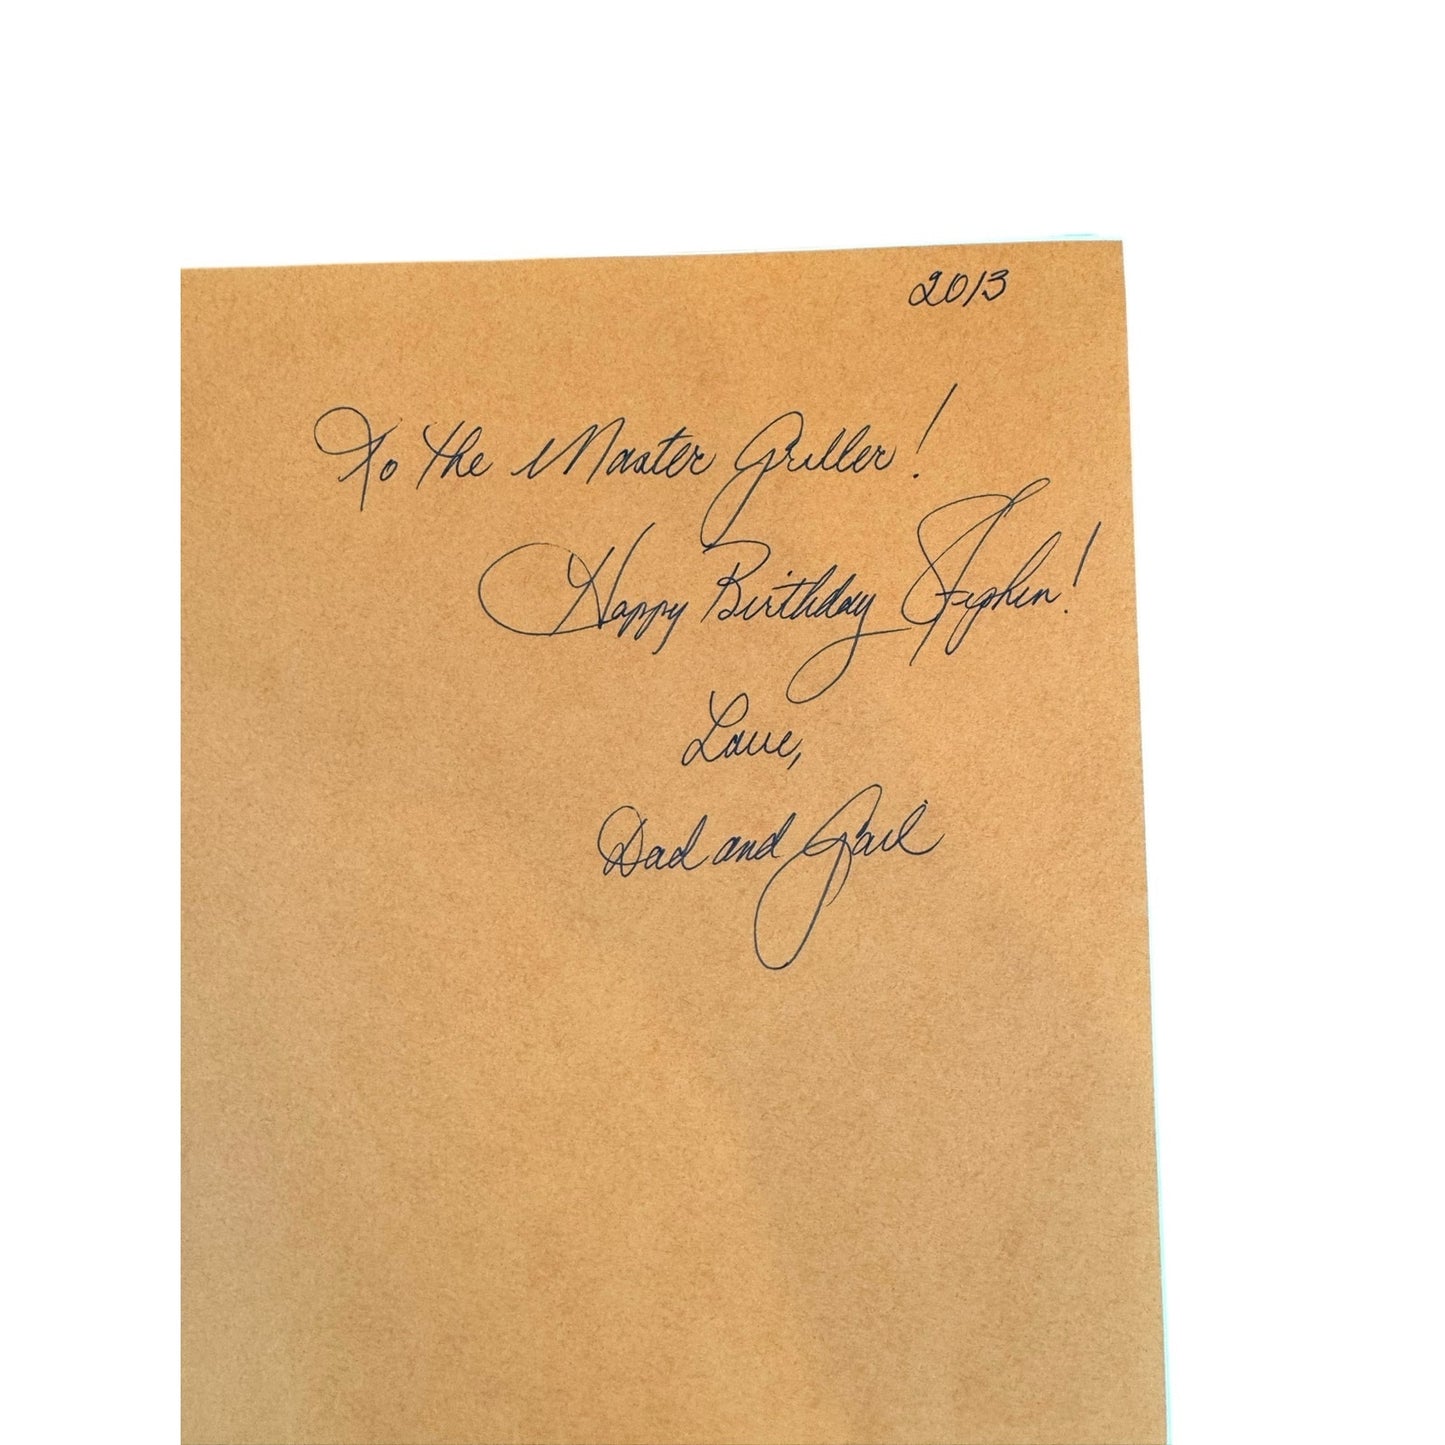 2013
To the Master Griller!
Happy Birthday Stephen!
Love,
Dad and Gail